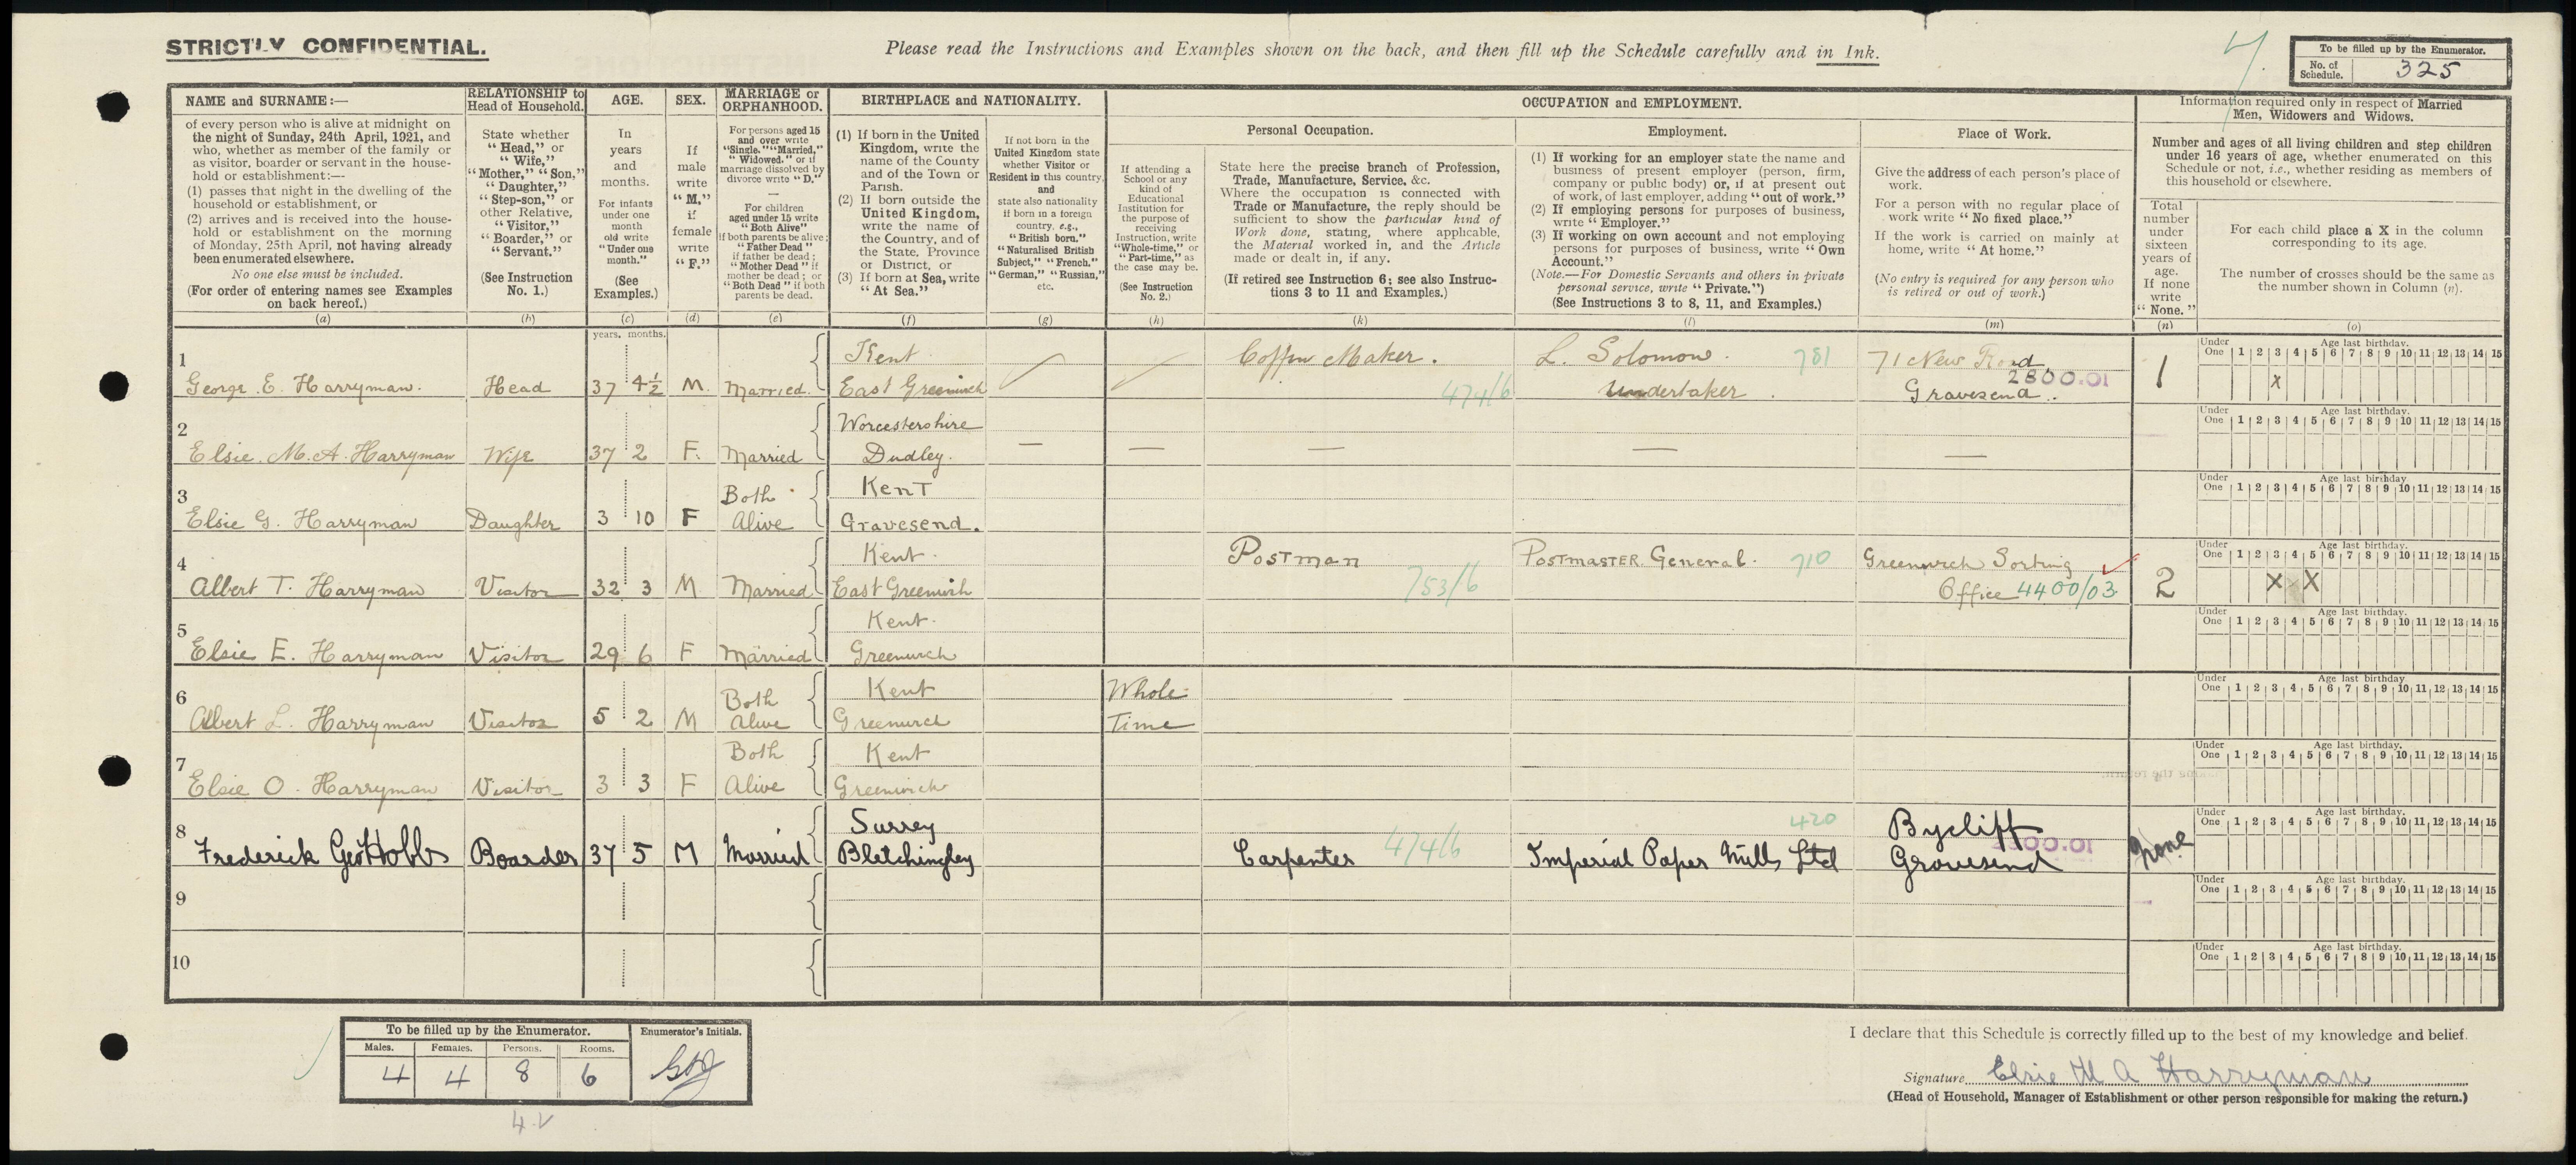 STRICTLY CONFIDENTIAL.
Please read the Instructions and Examples shown on the back, and then fill up the Schedule carefully and in Ink.
To be filled up by the Enumerator.
No. of Schedule. 325
NAME and SURNAME:—
of every person who is alive at midnight on
the night of Sunday, 24th April, 1921, and
who, whether as member of the family or
as visitor, boarder or servant in the house-
hold or establishment:—
(1) passes that night in the dwelling of the
household or establishment, or
(2) arrives and is received into the house-
hold or establishment on the morning
of Monday, 25th April, not having already
been enumerated elsewhere.
No one else must be included.
(For order of entering names see Examples
on back hereof.)
(a)
RELATIONSHIP to
Head of Household.
State whether
"Head," or
"Wife,"
"Mother," "Son,"
"Daughter,"
"Step-son," or
other Relative,
"Visitor,"
"Boarder," or
"Servant."
(See Instruction
No. 1.)
(b)
AGE.
In
years
and
months.
For infants
under one
month
old write
"Under one
month."
(See
Examples.)
(c)
SEX.
If
male
write
"M,"
if
female
write
"F."
(d)
MARRIAGE or
ORPHANHOOD.
For persons aged 15
and over write
"Single," "Married,"
"Widowed," or if
marriage dissolved by
divorce write "D."
—
For children
aged under 15 write
"Both Alive"
if both parents be alive;
"Father Dead"
if father be dead;
"Mother Dead" if
mother be dead; or
"Both Dead" if both
parents be dead.
(e)
BIRTHPLACE and NATIONALITY.
(1) If born in the United
Kingdom, write the
name of the County
and of the Town or
Parish.
(2) If born outside the
United Kingdom,
write the name of
the Country, and of
the State, Province
or District, or
(3) If born at Sea, write
"At Sea."
(f)
If not born in the
United Kingdom state
whether Visitor or
Resident in this country,
and
state also nationality
if born in a foreign
country, e.g.,
"British born."
"Naturalised British
Subject," "French,"
"German," "Russian,"
etc.
(g)
OCCUPATION and EMPLOYMENT.
Personal Occupation.
If attending a
School or any
kind of
Educational
Institution for
the purpose of
receiving
Instruction, write
"Whole-time," or
"Part-time," as
the case may be.
(See Instruction
No. 2.)
(h)
State here the precise branch of Profession,
Trade, Manufacture, Service, &c.
Where the occupation is connected with
Trade or Manufacture, the reply should be
sufficient to show the particular kind of
Work done, stating, where applicable,
the Material worked in, and the Article
made or dealt in, if any.
(If retired see Instruction 6; see also Instruc-
tions 3 to 11 and Examples.)
(k)
Employment.
(1) If working for an employer state the name and
business of present employer (person, firm,
company or public body) or, if at present out
of work, of last employer, adding "out of work."
(2) If employing persons for purposes of business,
write "Employer."
(3) If working on own account and not employing
persons for purposes of business, write "Own
Account."
(Note.—For Domestic Servants and others in private
personal service, write "Private.")
(See Instructions 3 to 8, 11, and Examples.)
(l)
Place of Work.
Give the address of each person's place of
work.
For a person with no regular place of
work write "No fixed place."
If the work is carried on mainly at
home, write "At home."
(No entry is required for any person who
is retired or out of work.)
(m)
Information required only in respect of Married
Men, Widowers and Widows.
Number and ages of all living children and step children
under 16 years of age, whether enumerated on this
Schedule or not, i.e., whether residing as members of
this household or elsewhere.
Total
number
under
sixteen
years of
age.
If none
write
"None."
(n)
For each child place a X in the column
corresponding to its age.
The number of crosses should be the same as
the number shown in Column (n).
(o)
years. months.
1 George. E. Harryman. Head 37 4½ M. Married. Kent East Greenwich Coffin Maker. 474/6 L. Solomon. 781 Undertaker. 71 New Road 2800.01 Gravesend. 1 X
Under One 1 2 3 4 5 6 7 8 9 10 11 12 13 14 15 Age last birthday.
2 Elsie. M. A. Harryman Wife 37 2 F. Married Worcestershire Dudley. — — — — —
Under One 1 2 3 4 5 6 7 8 9 10 11 12 13 14 15 Age last birthday.
3 Elsie G. Harryman Daughter 3 10 F Both Alive Kent Gravesend.
Under One 1 2 3 4 5 6 7 8 9 10 11 12 13 14 15 Age last birthday.
4 Albert T. Harryman Visitor 32 3 M Married Kent. East Greenwich Postman 753/6 Postmaster General. 710 Greenwich Sorting Office 4400/03 2 X X
Under One 1 2 3 4 5 6 7 8 9 10 11 12 13 14 15 Age last birthday.
5 Elsie E. Harryman Visitor 29 6 F Married Kent. Greenwich
Under One 1 2 3 4 5 6 7 8 9 10 11 12 13 14 15 Age last birthday.
6 Albert L. Harryman Visitor 5 2 M Both Alive Kent Greenwich Whole- Time
Under One 1 2 3 4 5 6 7 8 9 10 11 12 13 14 15 Age last birthday
7 Elsie O. Harryman Visitor 3 3 F Both Alive Kent Greenwich
Under One 1 2 3 4 5 6 7 8 9 10 11 12 13 14 15 Age last birthday.
8 Frederick Geo Hobbs Boarder 37 5 M Married Surrey Bletchingley Carpenter 474/6 Imperial Paper Mills Ltd 420 Bycliff Gravesend None
Under One 1 2 3 4 5 6 7 8 9 10 11 12 13 14 15 Age last birthday.
9
Under One 1 2 3 4 5 6 7 8 9 10 11 12 13 14 15 Age last birthday.
10
Under One 1 2 3 4 5 6 7 8 9 10 11 12 13 14 15 Age last birthday.
To be filled up by the Enumerator.
Males. Females. Persons. Rooms.
4 4 8 6
Enumerator's Initials.
I declare that this Schedule is correctly filled up to the best of my knowledge and belief.
Signature Elsie M A Harryman
(Head of Household, Manager of Establishment or other person responsible for making the return.)